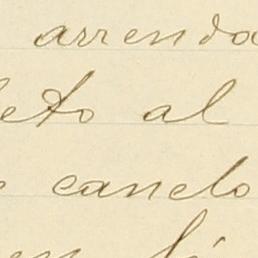 arrenda
eto al
canelo
en